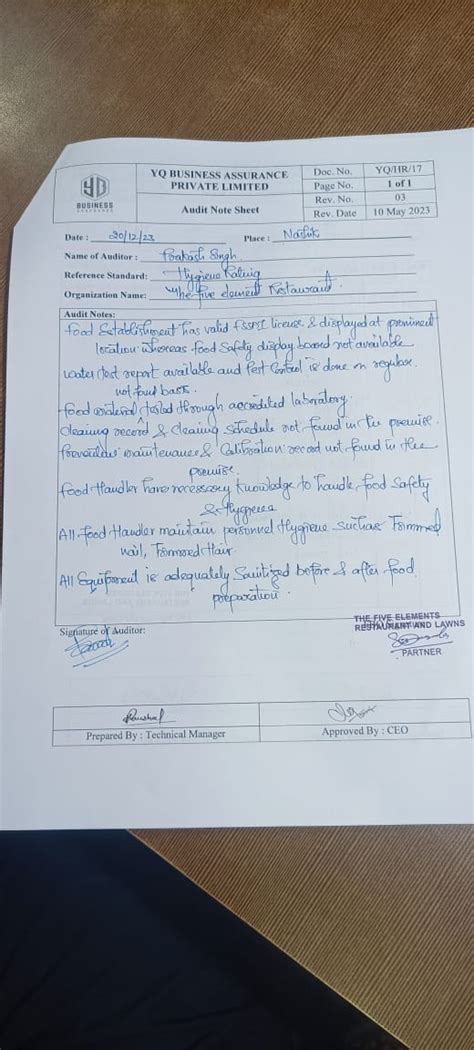 YQ BUSINESS ASSURANCE
PRIVATE LIMITED
Audit Note Sheet
Doc. No. YQ/HR/17
Page No. 1 of 1
Rev. No. 03
Rev. Date 10 May 2023
BUSINESS
ASSURANCE
Date : 20/12/23 Place : Nashik
Name of Auditor : Prakash Singh
Reference Standard: Hygiene Rating
Organization Name: The five element Restaurant
Audit Notes:
Food Establishment has valid FSSAI license & displayed at prominent
location whereas food Safety display board not available
water test report available and Pest Control is done on regular
not found basis.
food material tested through accredited laboratory.
Cleaning record & Cleaning Schedule not found in the premise.
Preventive maintenance & Calibration record not found in the
premise.
Food Handler have necessary knowledge to handle food Safety
& Hygiene
All food Handler maintain personnel Hygiene such as Trimmed
nail, Trimmed Hair.
All Equipment is adequately Sanitized before & after food
preparation.
Signature of Auditor:
THE FIVE ELEMENTS
RESTAURANT AND LAWNS
PARTNER
Prepared By : Technical Manager
Approved By : CEO